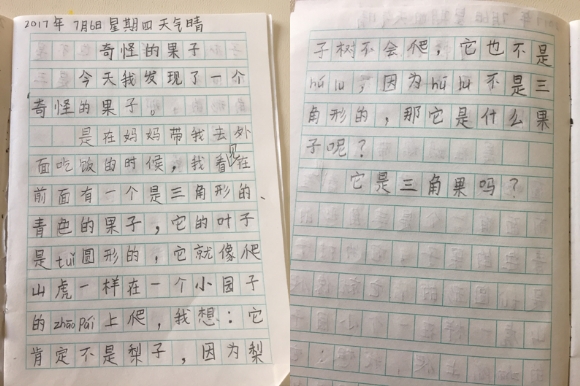 2017年 7月6日 星期四 天气晴
奇怪的果子
今天我发现了一个
奇怪的果子。
是在妈妈带我去外
面吃饭的时候，我看见在
前面有一个是三角形的、
青色的果子，它的叶子
是tuǐ圆形的，它就像爬
山虎一样在一个小园子
的zhāo pái上爬，我想：它
肯定不是梨子，因为梨
子树不会爬，它也不是
hú lu，因为hú lu不是三
角形的，那它是什么果
子呢？
它是三角果吗？